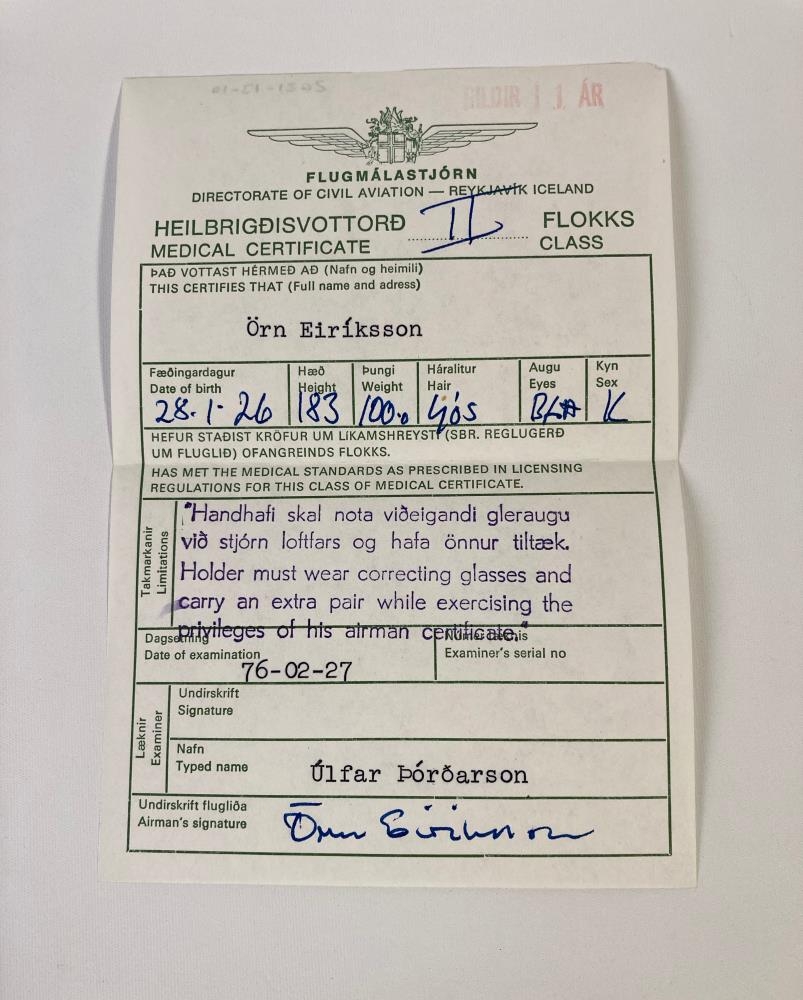 GILDIR Í 1 ÁR
FLUGMÁLASTJÓRN
DIRECTORATE OF CIVIL AVIATION — REYKJAVÍK ICELAND
HEILBRIGÐISVOTTORÐ II FLOKKS
MEDICAL CERTIFICATE CLASS
ÞAÐ VOTTAST HÉRMEÐ AÐ (Nafn og heimili)
THIS CERTIFIES THAT (Full name and adress)
Örn Eiríksson
Fæðingardagur Hæð Þungi Háralitur Augu Kyn
Date of birth Height Weight Hair Eyes Sex
28.1.26 183 100. ljós BLÁ K
HEFUR STAÐIST KRÖFUR UM LÍKAMSHREYSTI (SBR. REGLUGERÐ
UM FLUGLIÐ) OFANGREINDS FLOKKS.
HAS MET THE MEDICAL STANDARDS AS PRESCRIBED IN LICENSING
REGULATIONS FOR THIS CLASS OF MEDICAL CERTIFICATE.
Takmarkanir
Limitations
"Handhafi skal nota viðeigandi gleraugu
við stjórn loftfars og hafa önnur tiltæk.
Holder must wear correcting glasses and
carry an extra pair while exercising the
privileges of his airman certificate."
Dagsetning Númer læknis
Date of examination Examiner's serial no
76-02-27
Læknir
Examiner
Undirskrift
Signature
Nafn
Typed name Úlfar Þórðarson
Undirskrift flugliða
Airman's signature Örn Eiríksson